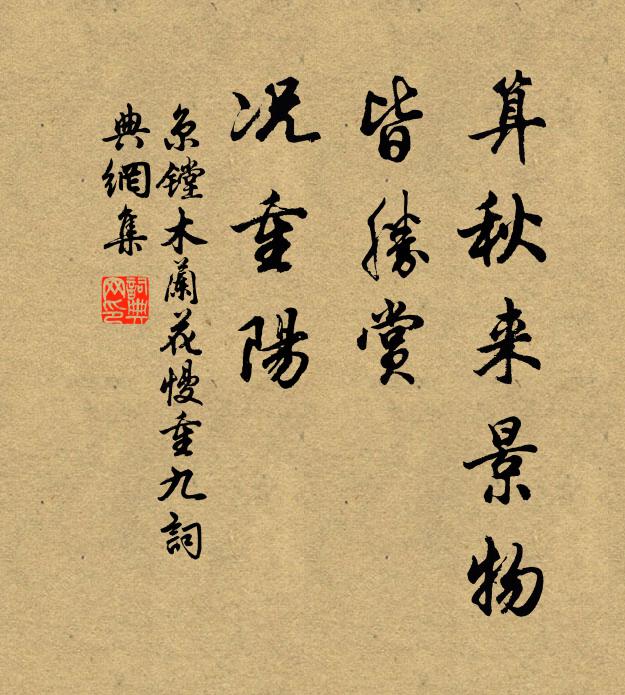 算秋来景物
皆勝賞
况重陽
京镗木蘭花慢重九詞
典網集
詞典
网印